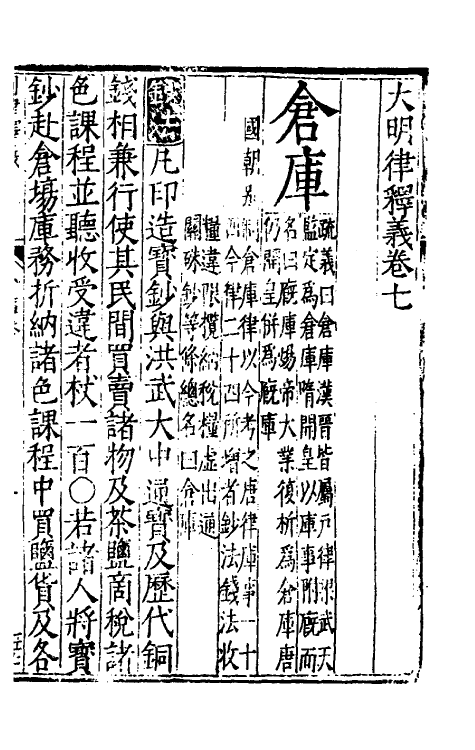 大明律釋義卷七
倉庫
疏義曰倉庫漢晉皆屬戶律梁武天
監定爲倉庫隋開皇以庫事附廐而
名曰廐庫煬帝大業復析爲倉庫唐
仍開皇併爲廐庫
國朝倉庫律以今考之唐律庫事一十
四今律二十四所增者鈔法錢法收
糧違限攬納稅糧虛出通
關硃鈔等條總名曰倉庫
鈔法 凡印造寶鈔與洪武大中通寶及歷代銅
錢相兼行使其民間買賣諸物及茶鹽商稅諸
色課程並聽收受違者杖一百〇若諸人將寶
鈔赴倉場庫務折納諸色課程中買鹽貨及各